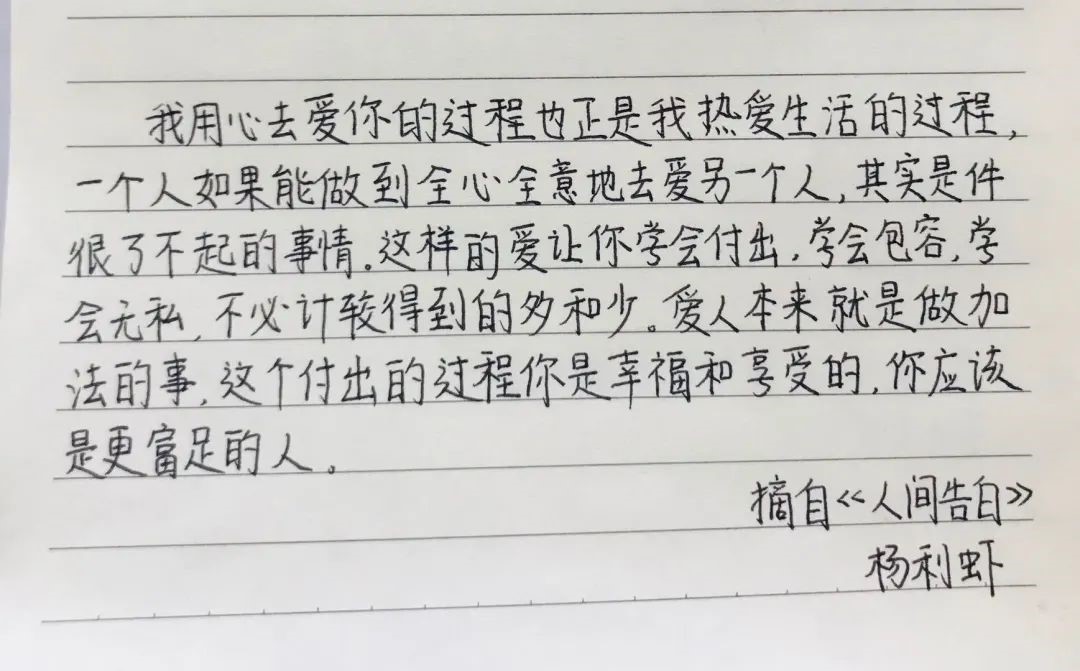 我用心去爱你的过程也正是我热爱生活的过程，
一个人如果能做到全心全意地去爱另一个人，其实是件
很了不起的事情。这样的爱让你学会付出，学会包容，学
会无私，不必计较得到的多和少。爱人本来就是做加
法的事，这个付出的过程你是幸福和享受的，你应该
是更富足的人。
摘自《人间告白》
杨利虾